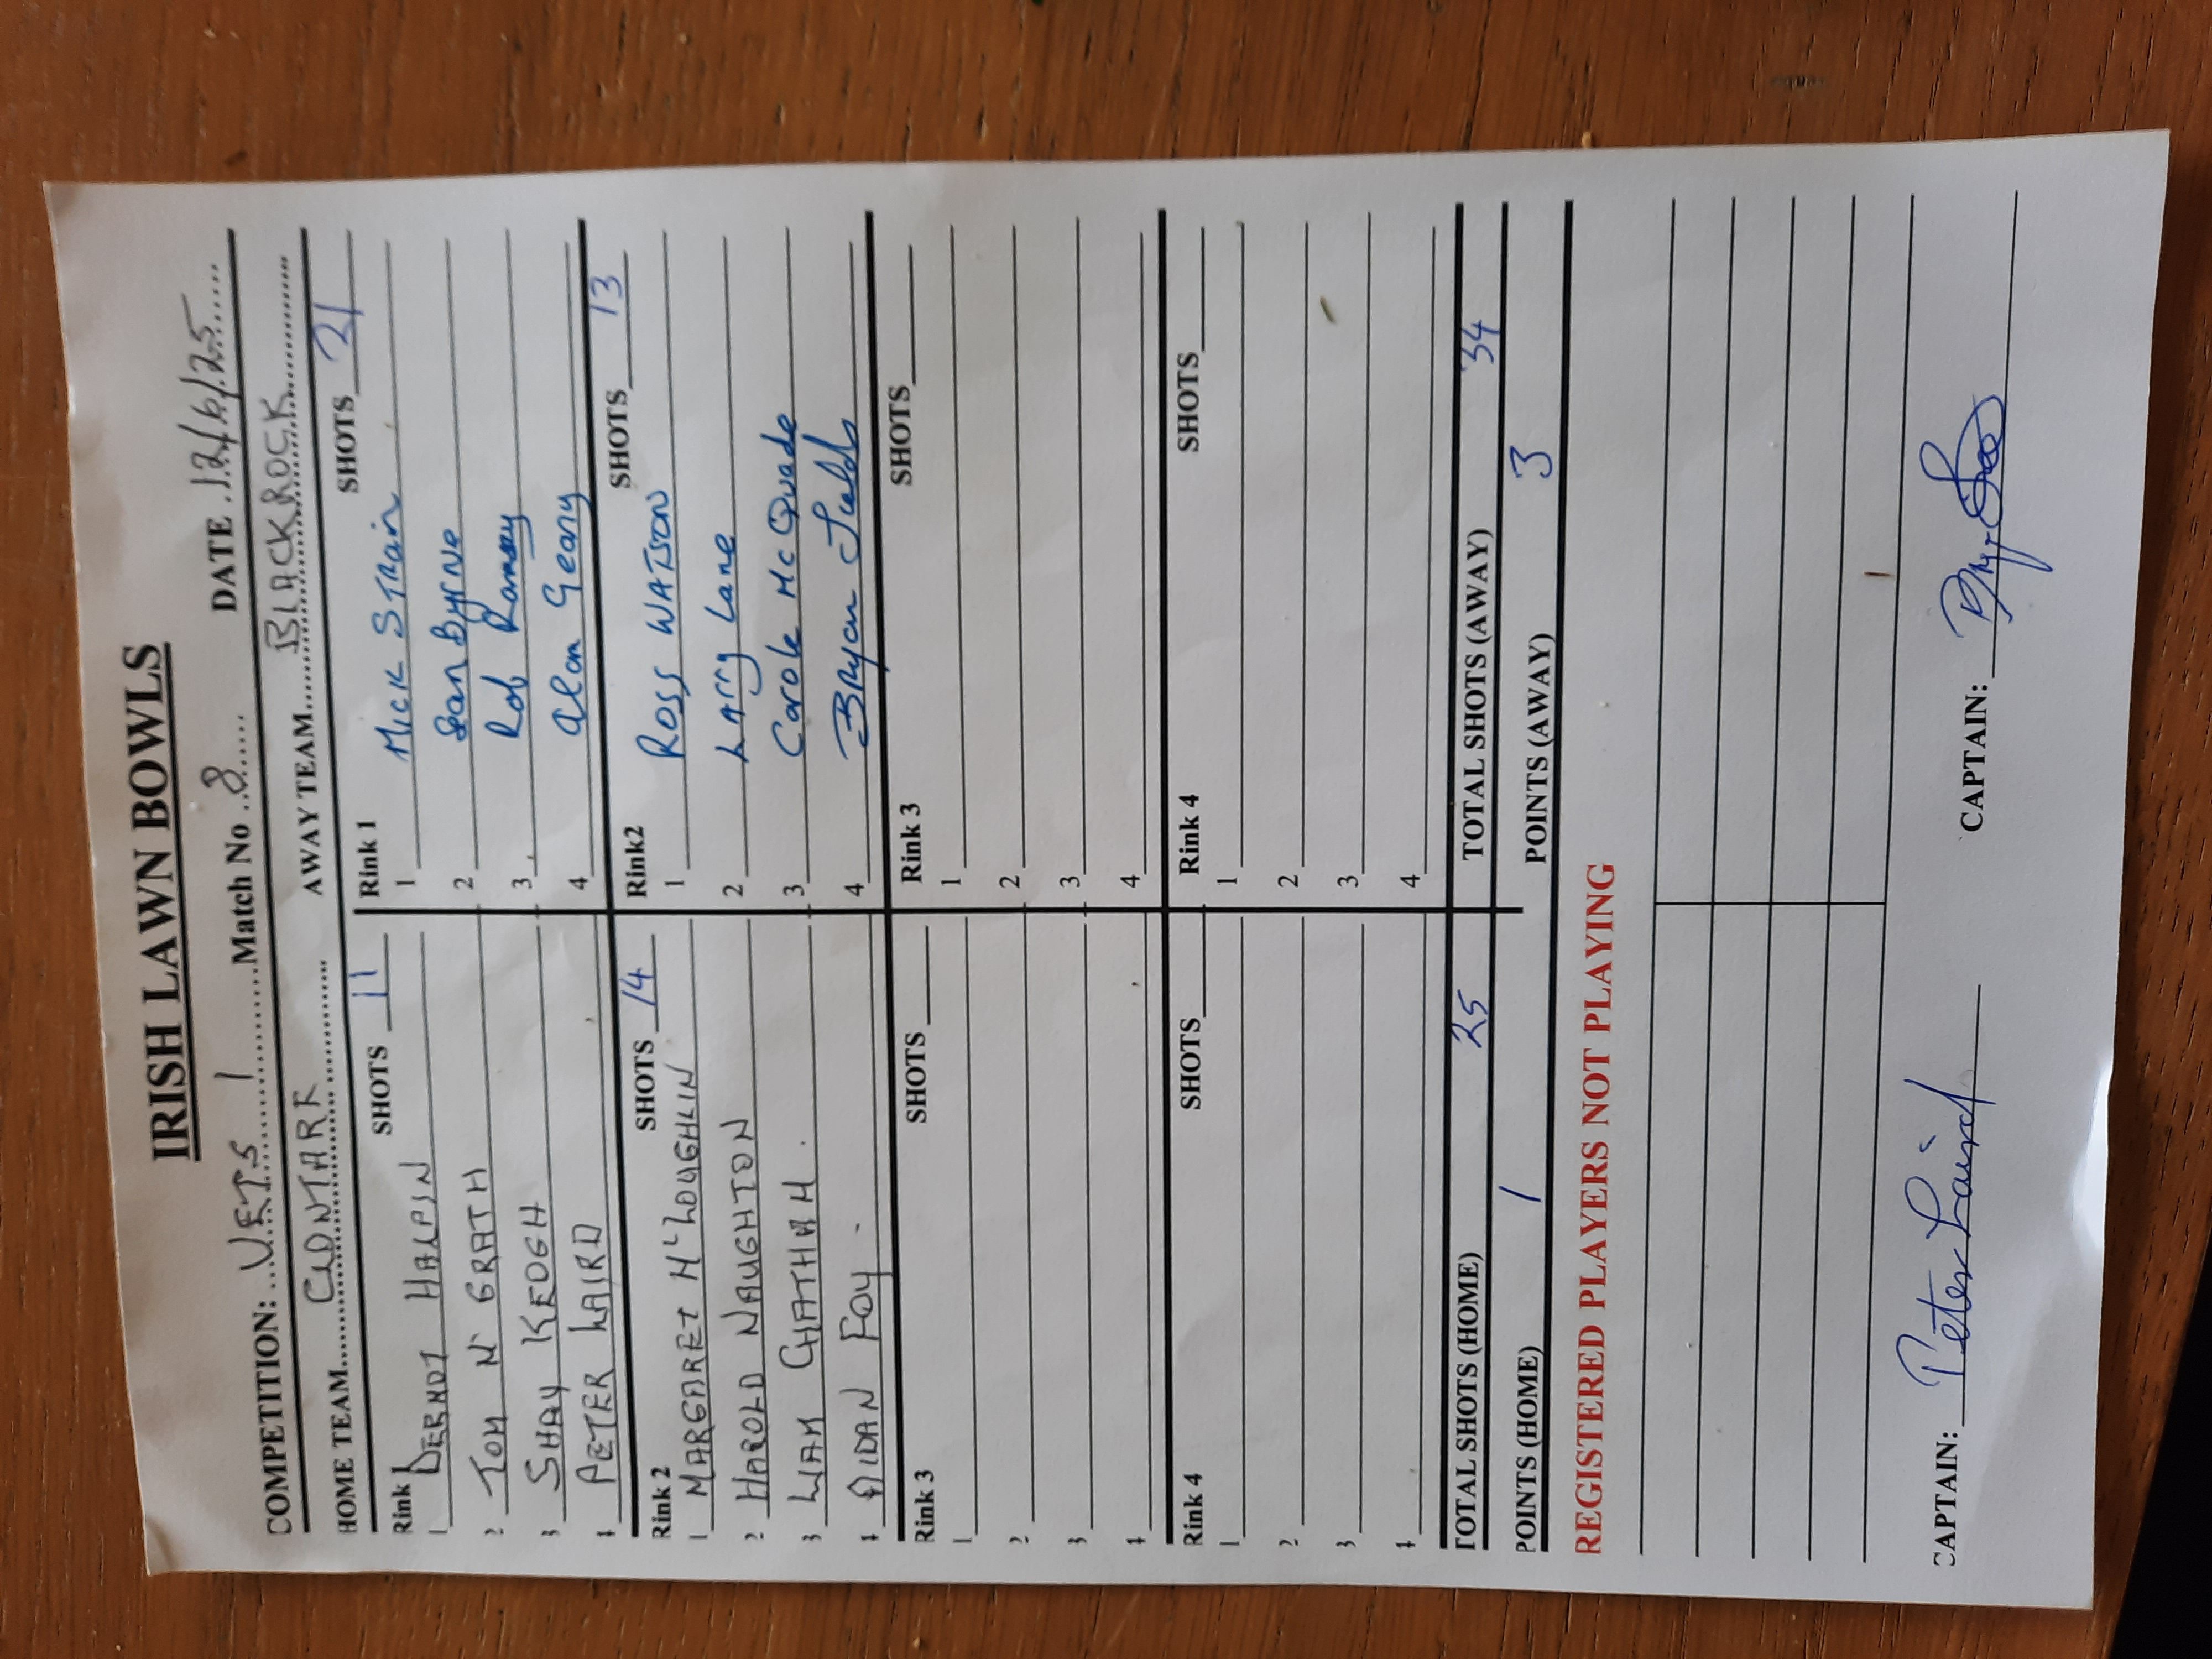 IRISH LAWN BOWLS
COMPETITION: ...VETS 1...Match No ..8..... DATE .12/6/25......
HOME TEAM....CLONTARF......... AWAY TEAM......BLACKROCK............
Rink 1 SHOTS 11 Rink 1 SHOTS 21
1 DERMOT HALPIN 1 Mick STRAIN
2 TOM Mc GRATH 2 Sean Byrne
3 SHAY KEOGH 3 Rob Ramsey
4 PETER LAIRD 4 Alan Geary
Rink 2 SHOTS 14 Rink2 SHOTS 13
1 MARGARET McLOUGHLIN 1 ROSS WATSON
2 HAROLD NAUGHTON 2 LArry Lane
3 LIAM CHATHAM. 3 Carole McQuade
4 AIDAN FOY. 4 BRyan
Rink 3 SHOTS Rink 3 SHOTS
1 1
2 2
3 3
4 4
Rink 4 SHOTS Rink 4 SHOTS
1 1
2 2
3 3
4 4
TOTAL SHOTS (HOME) 25 TOTAL SHOTS (AWAY) 34
POINTS (HOME) 1 POINTS (AWAY) 3
REGISTERED PLAYERS NOT PLAYING
CAPTAIN: Peter Laird CAPTAIN: